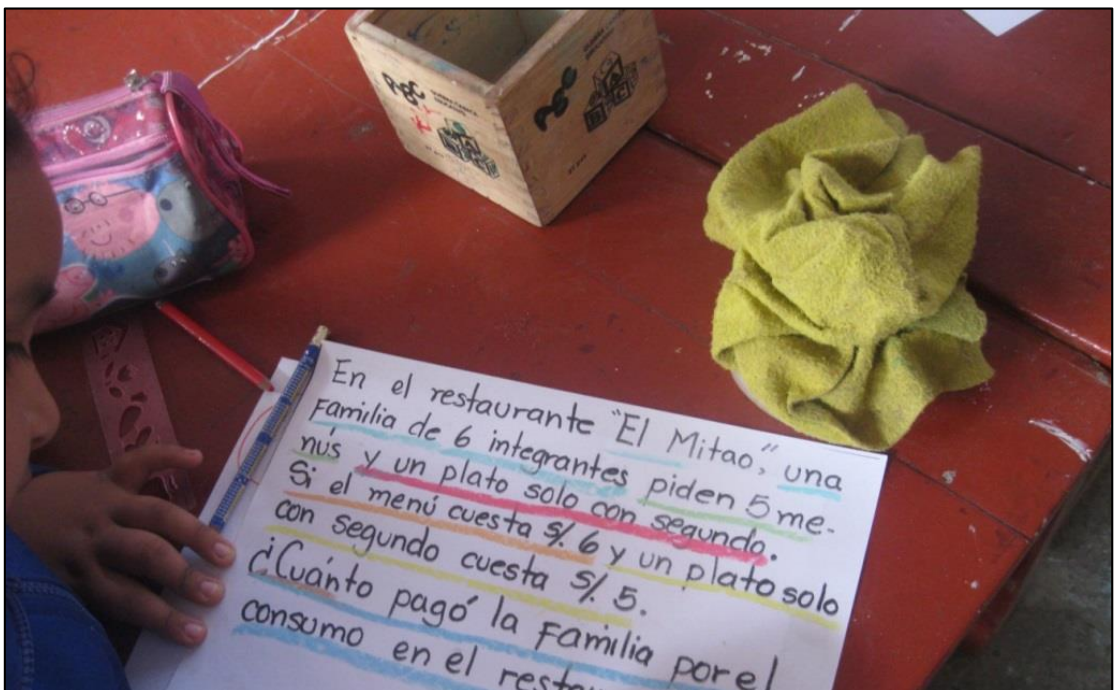 En el restaurante "El Mitao", una
Familia de 6 integrantes piden 5 me-
nús y un plato solo con segundo.
Si el menú cuesta S/. 6 y un plato solo
con segundo cuesta S/. 5.
¿Cuánto pagó la Familia por el
consumo en el